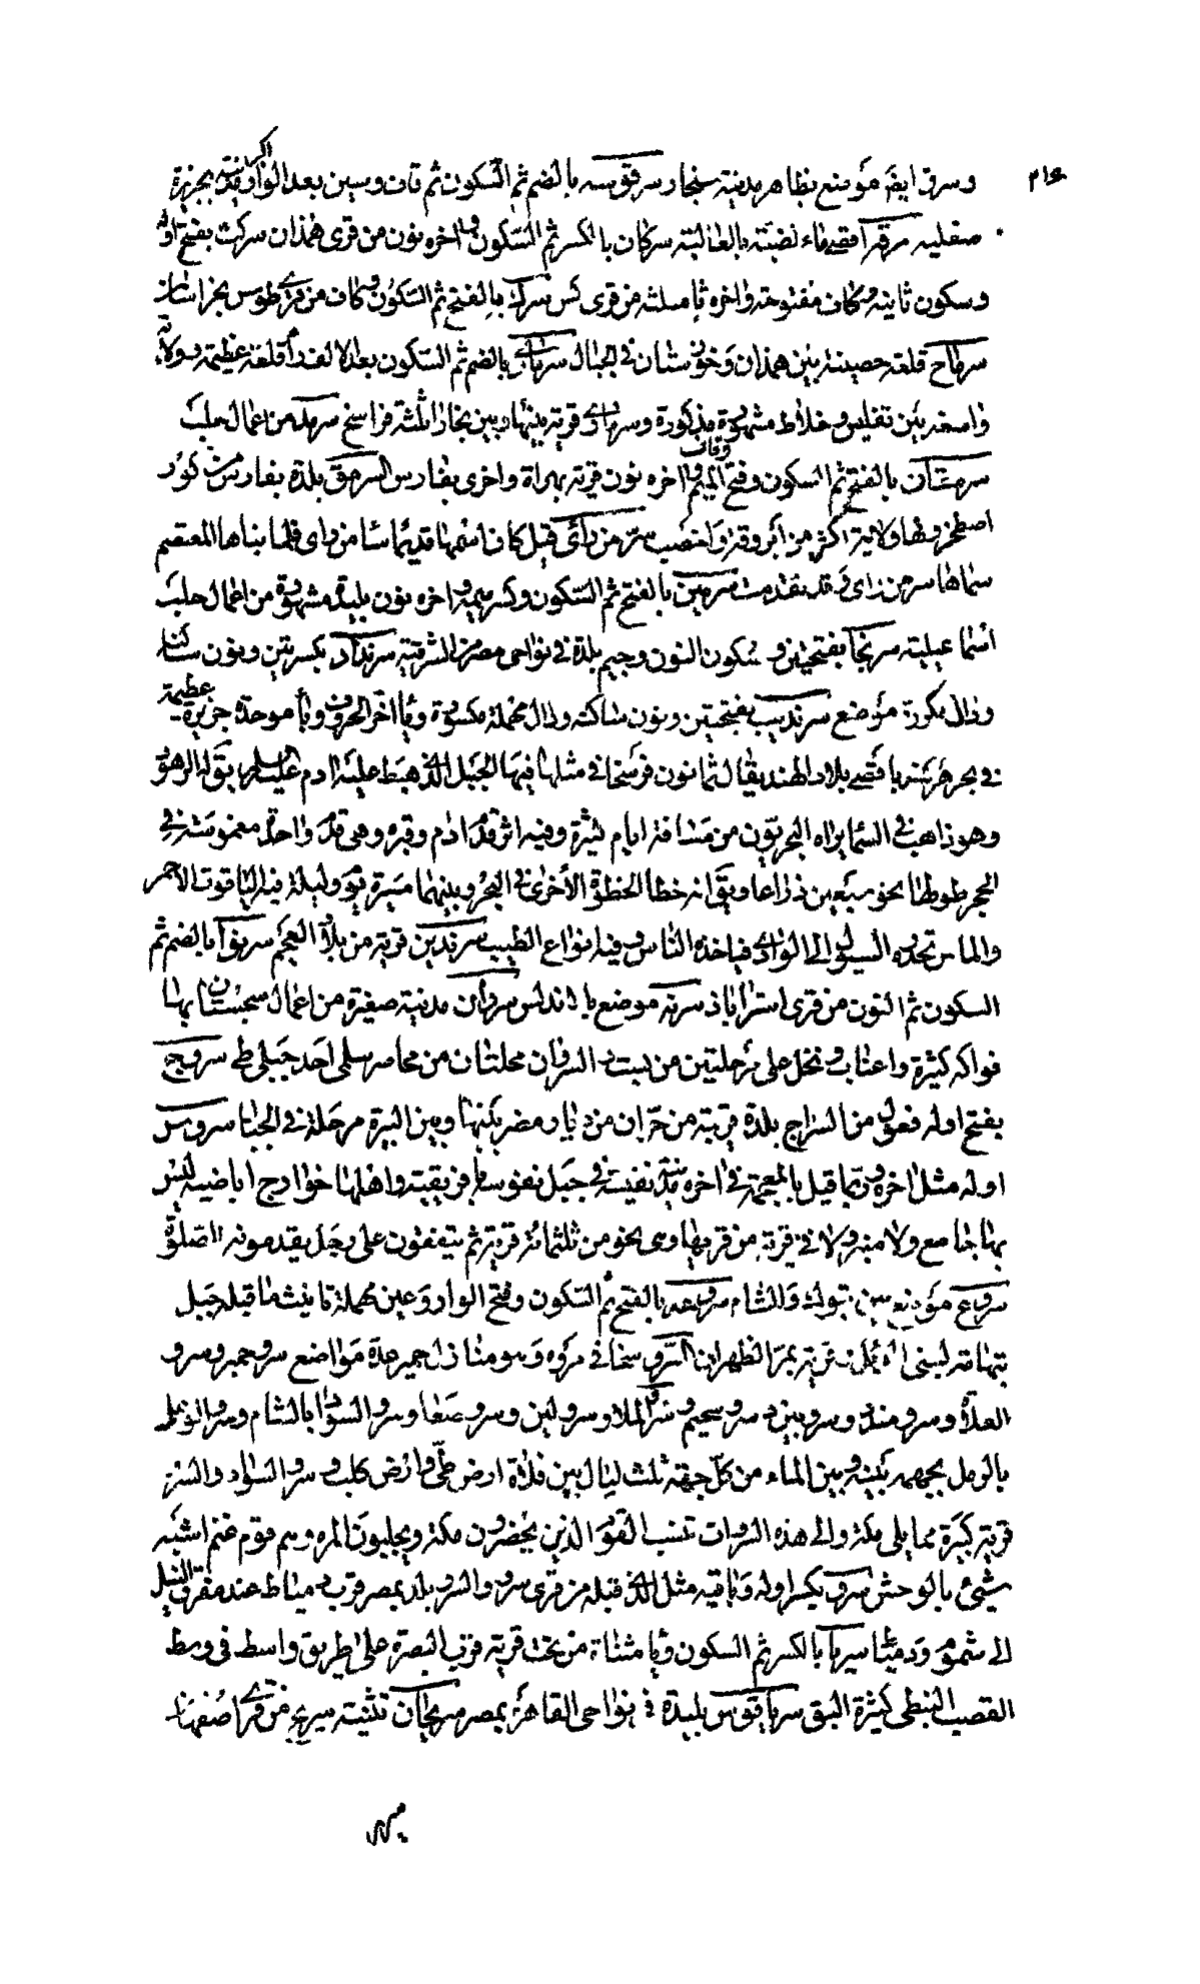 وسرق ايضا موضع بظاهر مدينة سنجار سرقوسه بالضم ثم السكون ثم قاف وسين بعد الواو اكبر مدينة بجزيرة
صقلية سرقه اقصى ماء لضبة بالعالية سركان بالكسر ثم السكون واخره نون من قرى همذان سركث بفتح اوله
وسكون ثانيه وكاف مفتوحة واخره ثاء مثلثة من قرى كس سرك بالفتح ثم السكون وكاف من قرى طوس بخراسان
سرماج قلعة حصينة بين همذان وخوزستان في الجبال سرماري بالضم ثم السكون بعد الالف راء قلعة عظيمة وولاية
واسعة بين تفليس وخلاط مشهورة مذكورة وسرماري قرية بينها وبين بخارا ثلثة فراسخ سرمد من اعمال حلب
سرمقان بالفتح ثم السكون وفتح الميم وقاف واخره نون قرية بهراة واخرى بفارس السرمق بلدة بفارس من كور
اصطخر ولها ولاية اكثر من ابرقوه واخصب سر من راى قيل كان اسمها قديما ساء من راى فلما بناها المعتصم
سماها سر من راى قد تقدمت سرمين بالفتح ثم السكون وكسر ميمه واخره نون بليدة مشهورة من اعمال حلب
اسماعيلية سرنجا بفتحتين وسكون النون وجيم بلدة في نواحي مصر من الشرقية سرنداد بكسرتين ونون ساكنة
ودال مكررة موضع سرنديب بفتحتين ونون ساكنة ودال مهملة مكسورة وياء اخر الحروف وباء موحدة جزيرة عظيمة
في بحر هركند باقصى بلاد الهند يقال ثمانون فرسخا في مثلها فيها الجبل الذي هبط عليه ادم عليه السلم يقال له الرهون
وهو ذاهب في السما يراه البحريون من مسافة ايام كثيرة وفيه اثر قدم ادم وقبره وهي قدم واحدة مغموسة في
الحجر طولها نحو سبعين ذراعا ويقال انه خطا الخطوة الأخرى في البحر وبينهما مسيرة يوم وليلة فيه الياقوت الاحمر
والماس تحدره السيول الى الوادي فياخذه الناس وفيه انواع الطيب سرندين قرية من بلاد العجم سرنوا بالضم ثم
السكون ثم النون من قرى استراباذ سرنه موضع بالاندلس سروان مدينة صغيرة من اعمال سجستان بها
فواكه كثيرة واعناب ونخل على مرحلتين من بست السروان محلتان من محاضر سلمى احد جبلي طي سروج
بفتح اوله فعول من السراج بلدة قريبة من حران من ديار مضر بينها وبين البيرة مرحلة في الجبا سروس
اوله مثل اخره وربما قيل بالمعجمة في اخره مدينة نفيسة في جبل نفوسة بافريقية واهلها خوارج اباضية ليس
بها جامع ولا منبر ولا في قرية من قربها وهي نحو من ثلثمائة قرية ثم يتفقون على رجل يقدمونه للصلوة
سروع موضع بين تبوك والشام سروعه بالفتح ثم السكون وفتح الواو وعين مهملة تانيث ما قبله جبل
بتهامة لبني الدئل قرية بمر الظهران السرو سخا في مروه وسو منازل حمير عدة مواضع سرو حمير وسرو
العلاة وسرو مندد وسرو بين وسرو سحيم وسرو الملا وسرو لبن وسرو صنعا وسرو السواد بالشام وسرو الرعل
بالرمل بجهمه بينه وبين الماء من كل جهة ثلث ليال بين فلاة ارض طي وارض كلب وسرو السواد والسرو
قرية كبيرة مما يلي مكة والى هذه السروات تنسب القوم الذين يحضرون مكة ويجلبون الميره وهم قوم غتم اشبه
شيئ بالوحش سرو بكسر اوله وباقيه مثل الذي قبله من قرى سرو والسرو بلد بمصر قرب دمياط عند مفرق النيل
الى شموم ودمياط سريا بالكسر ثم السكون ويا مثناة من تحت قرية قرب البصرة على طريق واسط في وسط
القصب النبطي كثيرة البق سرياقوس بليدة في نواحي القاهرة بمصر سريجان تثنية سريج من قرى اصفهان